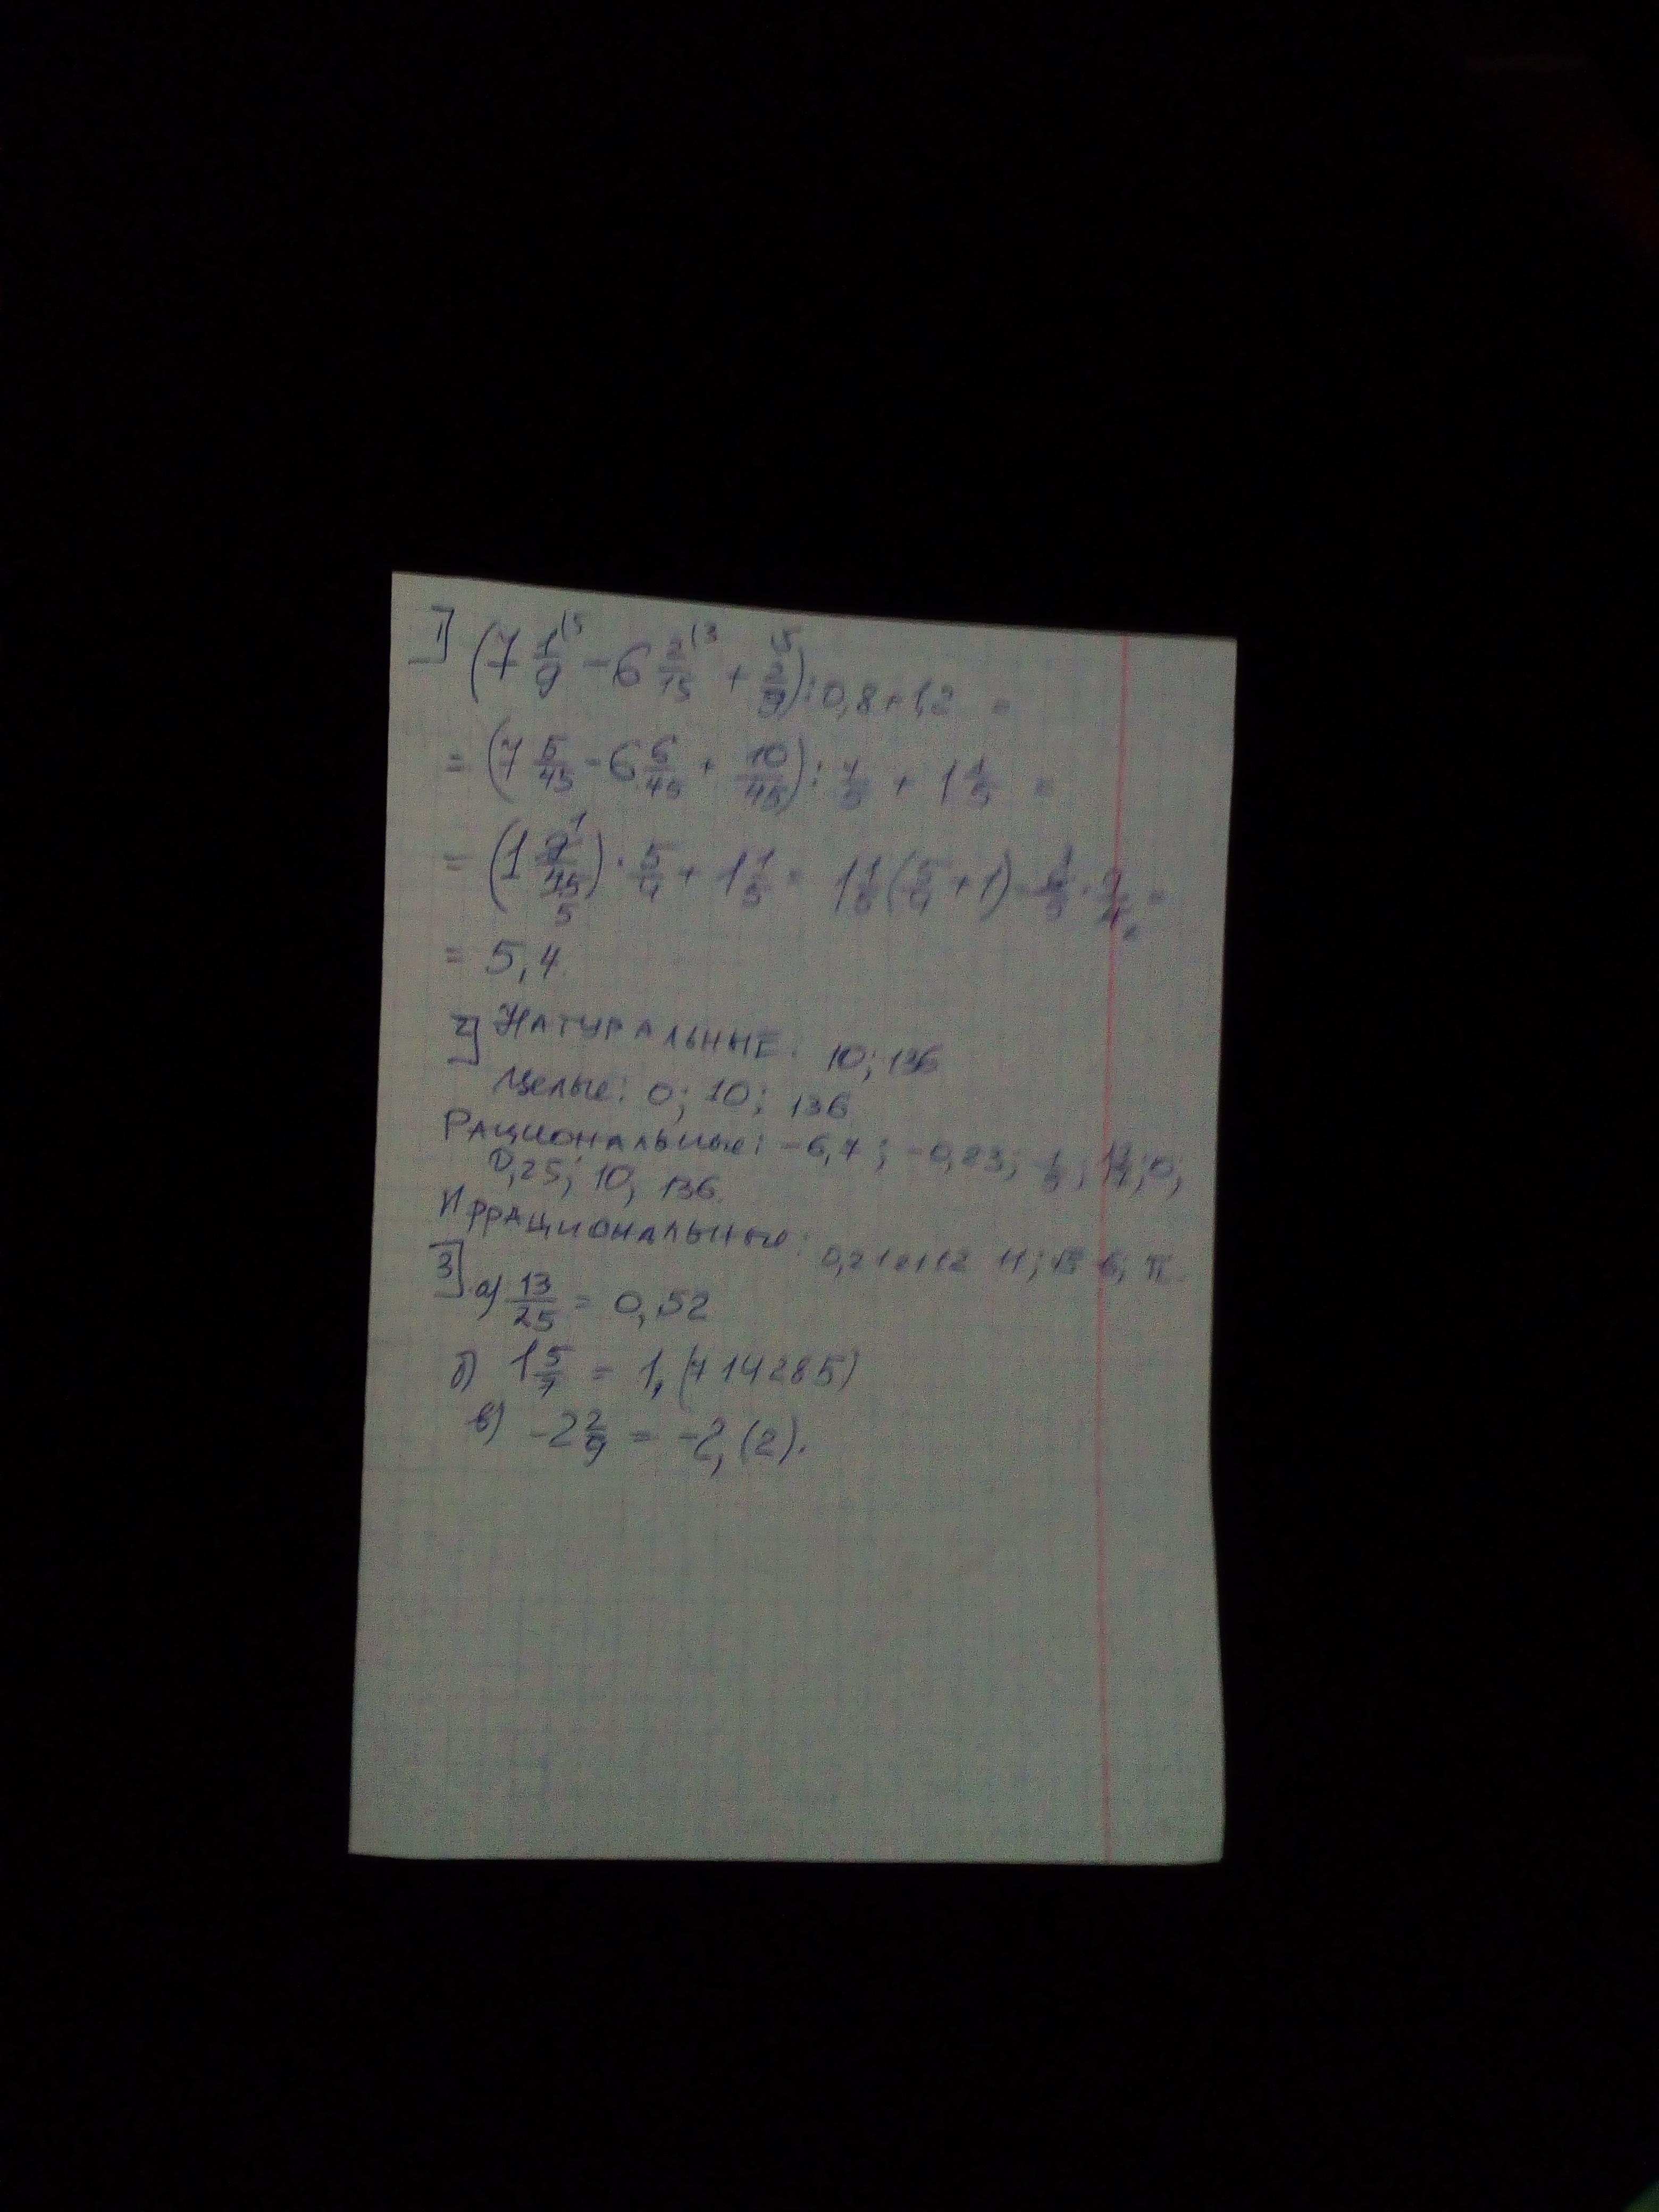 1] (7 1/9 (5 - 6 2/15 (3 + 2/9 (5) : 0,8 + 1,2 =
= (7 5/45 - 6 6/45 + 10/45) : 4/5 + 1 1/5 =
= (1 9/45 1 5) · 5/4 + 1 1/5 = 1 1/5 (5/4 + 1) 6/5 · 9/4 =
= 5,4.
2] Натуральные: 10; 136
Целые: 0; 10; 136
Рациональные: -6,7; -0,83; 1/5; 0;
0,25; 10, 136.
Иррациональные: π
3] а) 13/25 = 0,52
б) 1 5/7 = 1,(714285)
в) -2 2/9 = -2,(2).